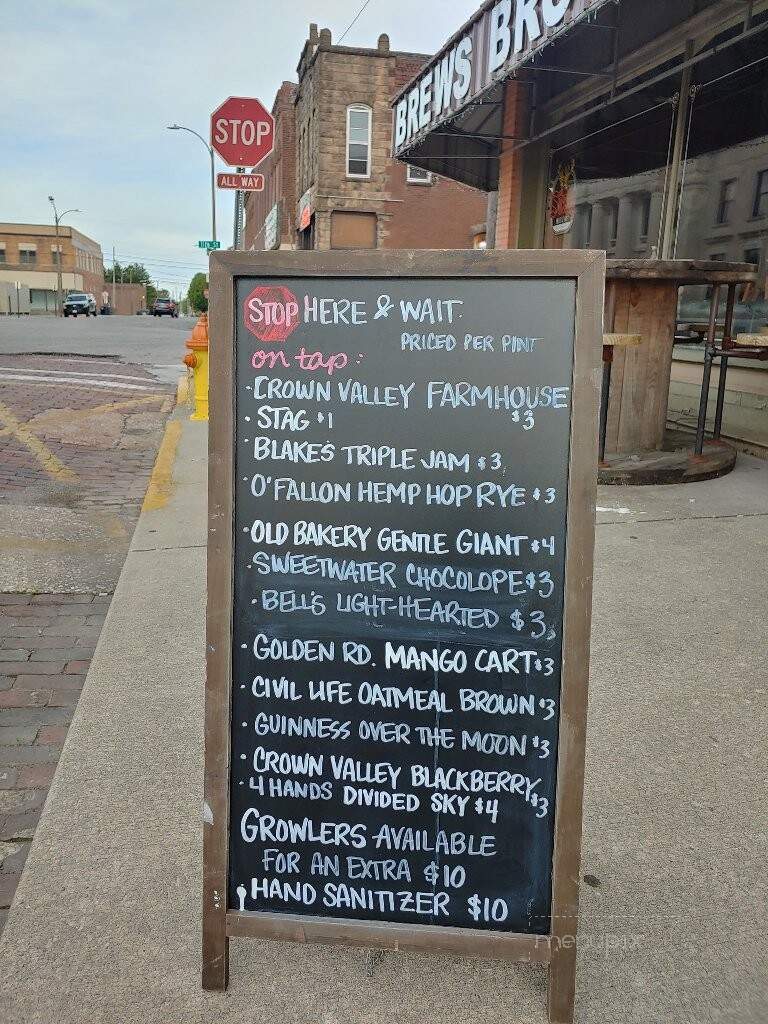 BREWS BRO
STOP
ALL WAY
11th ST
STOP HERE & WAIT.
PRICED PER PINT
on tap:
· CROWN VALLEY FARMHOUSE $3
· STAG $1
· BLAKE'S TRIPLE JAM $3
· O'FALLON HEMP HOP RYE $3
· OLD BAKERY GENTLE GIANT $4
· SWEETWATER CHOCOLOPE $3
· BELL'S LIGHT-HEARTED $3
· GOLDEN RD. MANGO CART $3
· CIVIL LIFE OATMEAL BROWN $3
· GUINNESS OVER THE MOON $3
· CROWN VALLEY BLACKBERRY $3
· 4 HANDS DIVIDED SKY $4
GROWLERS AVAILABLE
FOR AN EXTRA $10
HAND SANITIZER $10
menupix